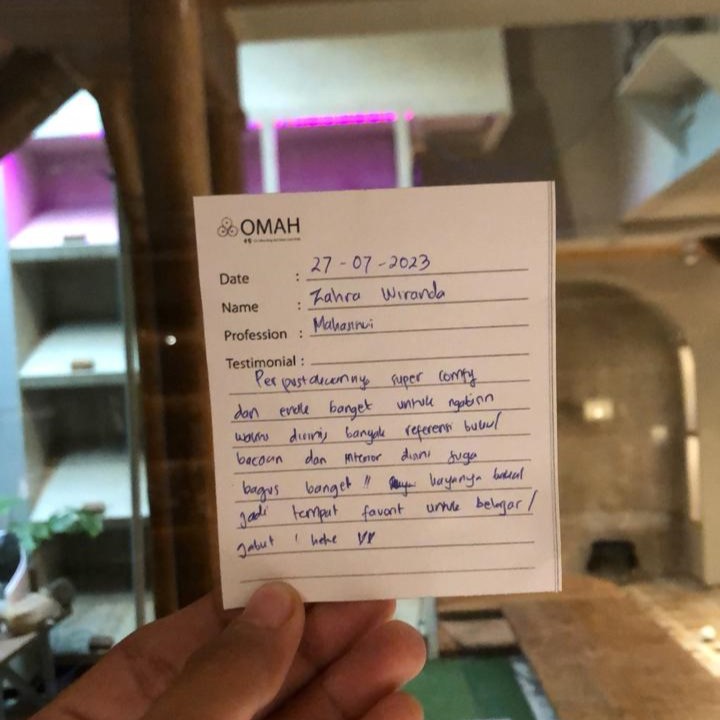 OMAH
Date : 27-07-2023
Name : Zahra Wiranda
Profession : Mahasiswi
Testimonial :
Perpustakaannya super comfy
dan enak banget untuk ngabisin
waktu disini, banyak referensi buku/
bacaan dan interior disini juga
bagus banget !! kayanya bakal
jadi tempat favorit untuk belajar/
gabut ! hehe